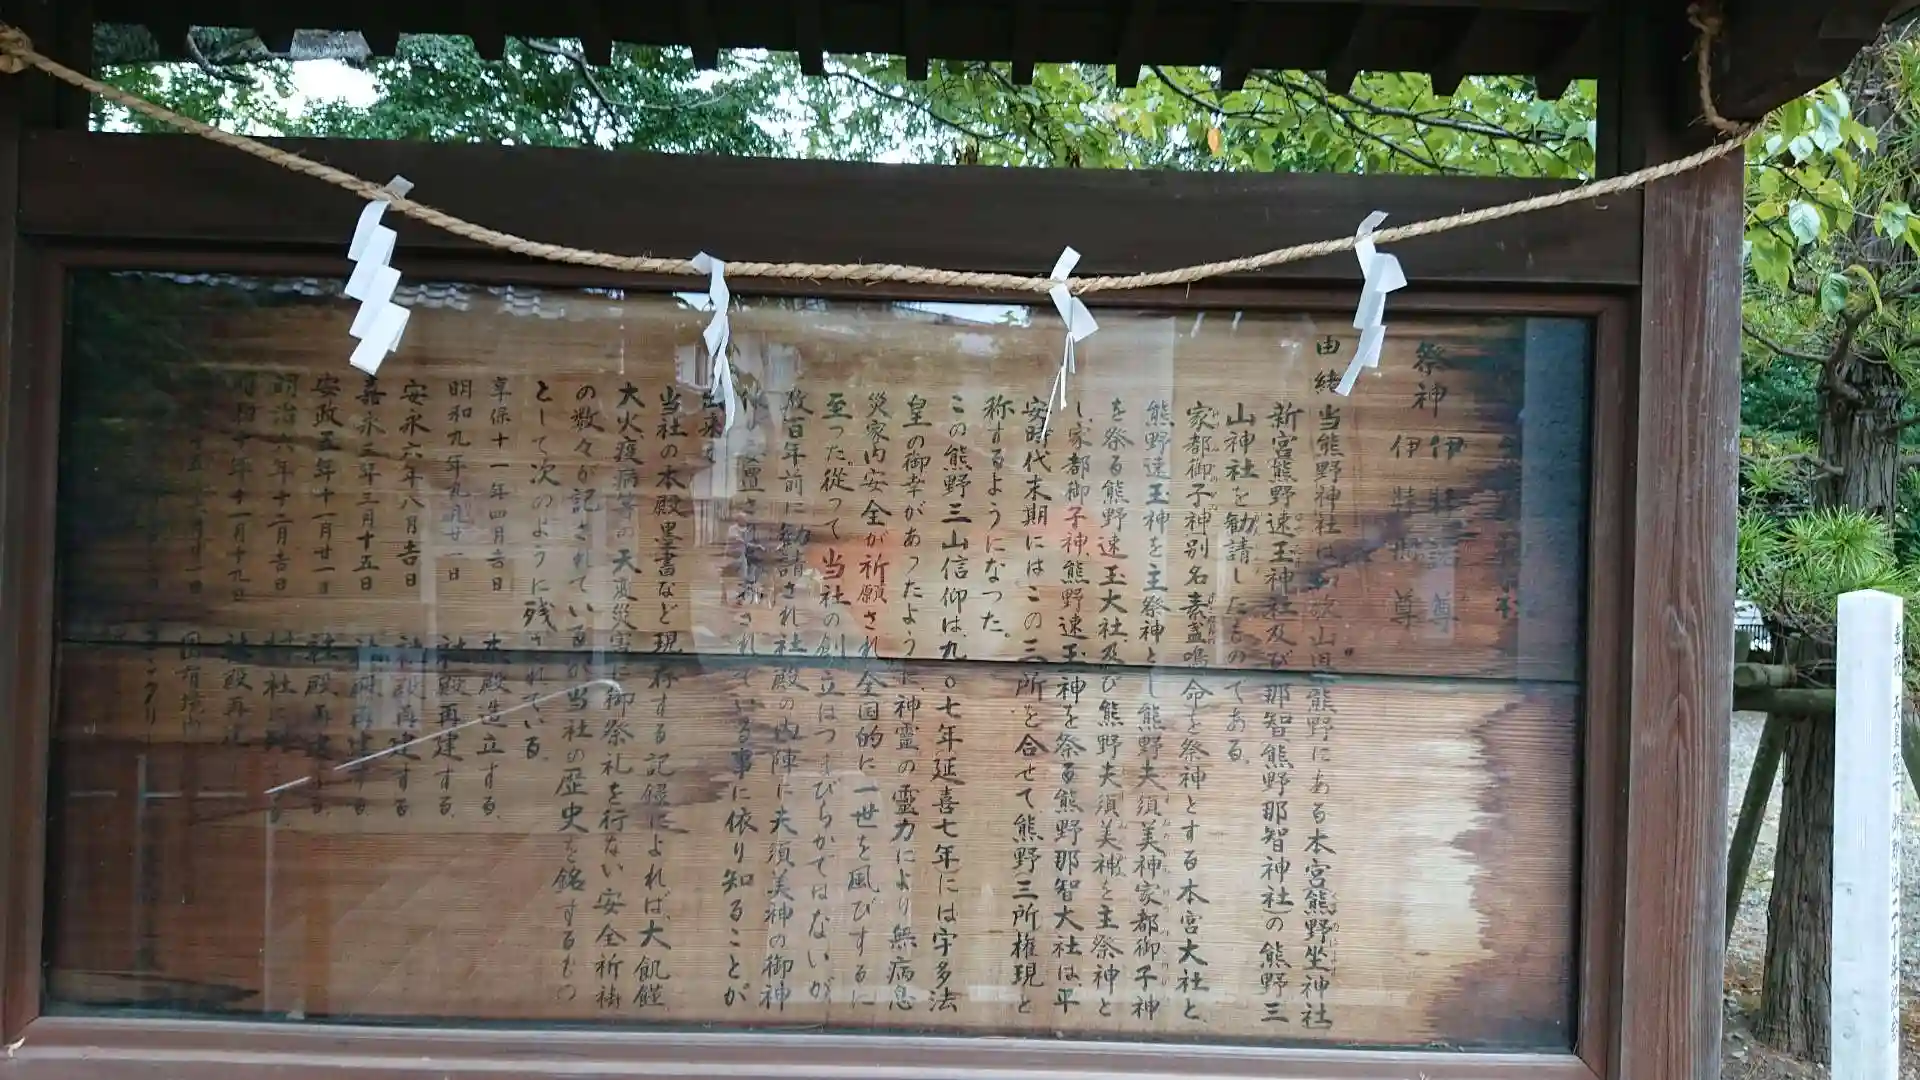 祭神 伊 諾尊
伊 尊
由緒 当熊野神社は和歌山県熊野にある本宮熊野坐神社
新宮熊野速玉神社及び那智熊野那智神社の熊野三
山神社を勧請したものである。
家都御子神別名素盞嗚命を祭神とする本宮大社と、
熊野速玉神を主祭神とし熊野夫須美神家都御子神
を祭る熊野速玉大社、及び熊野夫須美神を主祭神と
し家都御子神、熊野速玉神を祭る熊野那智大社は、平
安時代末期にはこの三所を合せて熊野三所権現と
称するようになった。
この熊野三山信仰は、九〇七年延喜七年には宇多法
皇の御幸があったように、神霊の霊力により無病息
災家内安全が祈願され全国的に一世を風びするに
至った。従って当社の創立はつまびらかではないが、
数百年前に勧請され社殿の内陣に夫須美神の御神
安置され されている事に依り知ることが
出来る
当社の本殿墨書など現存する記録によれば、大飢饉
大火疫病等の天変災害に御祭礼を行ない安全祈祷
の数々が記されているが当社の歴史を銘するもの
として次のように残されている。
享保十一年四月吉日 本殿造立する。
明和九年九月廿一日 社殿再建する。
安永六年八月吉日 社殿再建する。
嘉永三年三月十五日 再建する
安政五年十一月廿一日 社殿再建する。
明治六年十二月吉日 村社に
昭和十年十一月十九日 社殿再建
国有境内